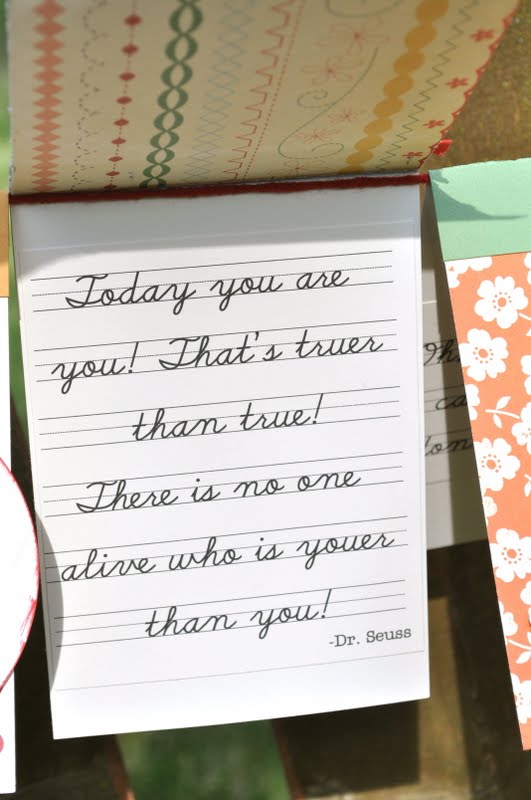 Today you are
you! That's truer
than true!
There is no one
alive who is youer
than you!
-Dr. Seuss